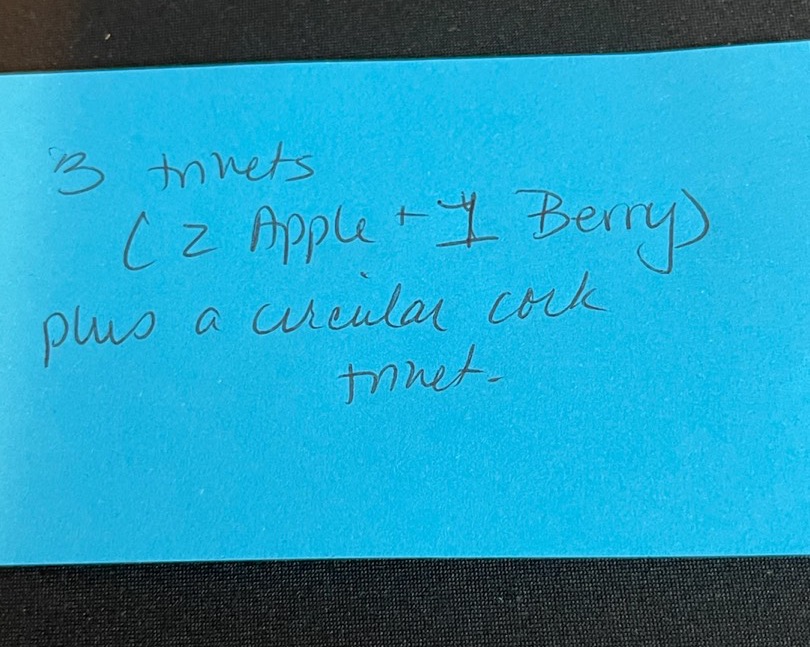 3 trivets
(2 Apple + 1 Berry)
plus a circular cork
trivet.